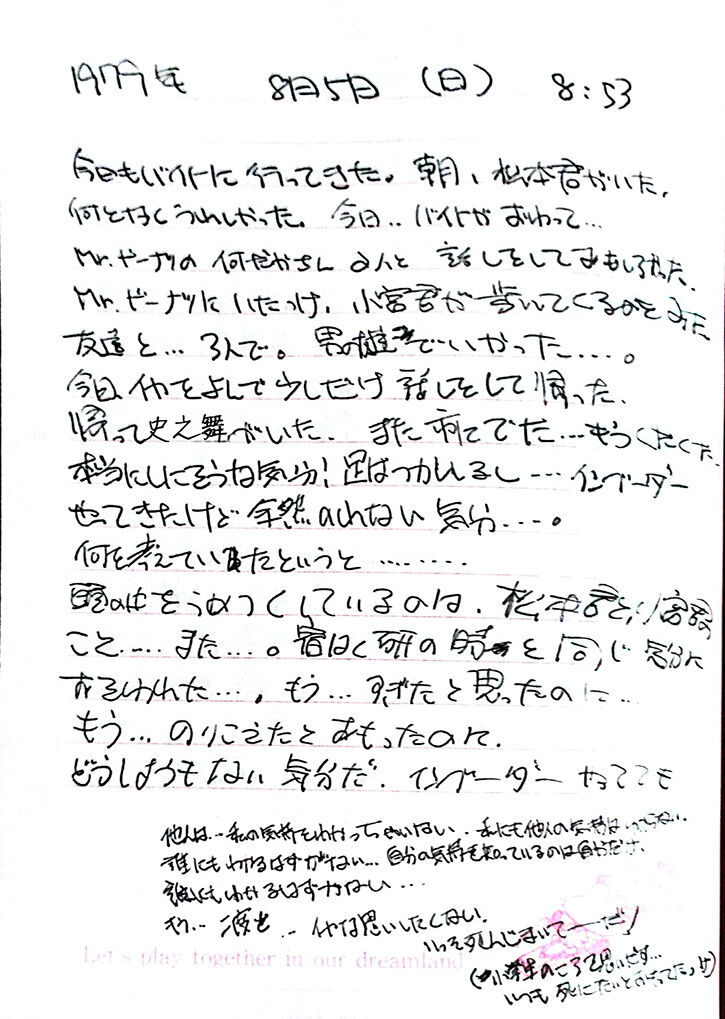 1979年 8月5日 (日) 8:53
今日もバイトに行ってきた。朝、松本君がいた。
何となくうれしかった。今日.. バイトがおわって...
Mr.ドーナツの 何だかさん 2人と 話しをしておもしろかった。
Mr.ドーナツにいたっけ、小宮君が歩いてくるのをみた
友達と... 3人で。男の でいかった....。
今日、 をよんで少しだけ話しをして帰った。
帰って史之舞がいた。また でた...もうくたくた
本当にしにそうな気分!足はつかれるし... インベーダー
やってきたけど全然のれない気分...。
何を考えていたというと ........
頭の中をうめつくしているのは、松本君と小宮君の
こと.... また....。宿はく研の時と同じ気分に
おそわれた...。もう... すぎたと思ったのに..
もう... のりこえたとおもったのに。
どうしようもない気分だ。インベーダーやってても
他人は..私の気持をわかっちゃいない。私にも他人の気持はわからない。
誰にもわかるはずがない...自分の気持を知っているのは自分だけ。
誰にもわかるはずがない...
もう.. 二度と .. イヤな思いしたくない。
いっそ死んじまいてーだ!
(小学生のころで思いだす...
いつも 死にたいと思ってたっけ)
Let's play together in our dreamland